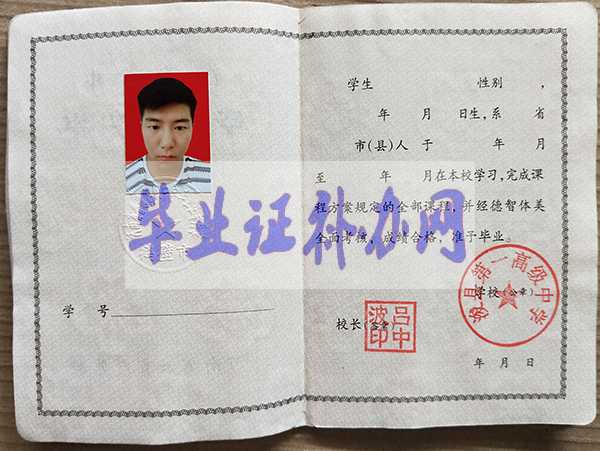 毕业证补办网
学 号
学生 性别 ,
年 月 日生,系 省
市(县)人 于 年 月
至 年 月在本校学习,完成课
程方案规定的全部课程,并经德智体美
全面考核,成绩合格,准予毕业。
县第一高级中学
学校(公章)
校长(签章)
吕中波印
年 月 日